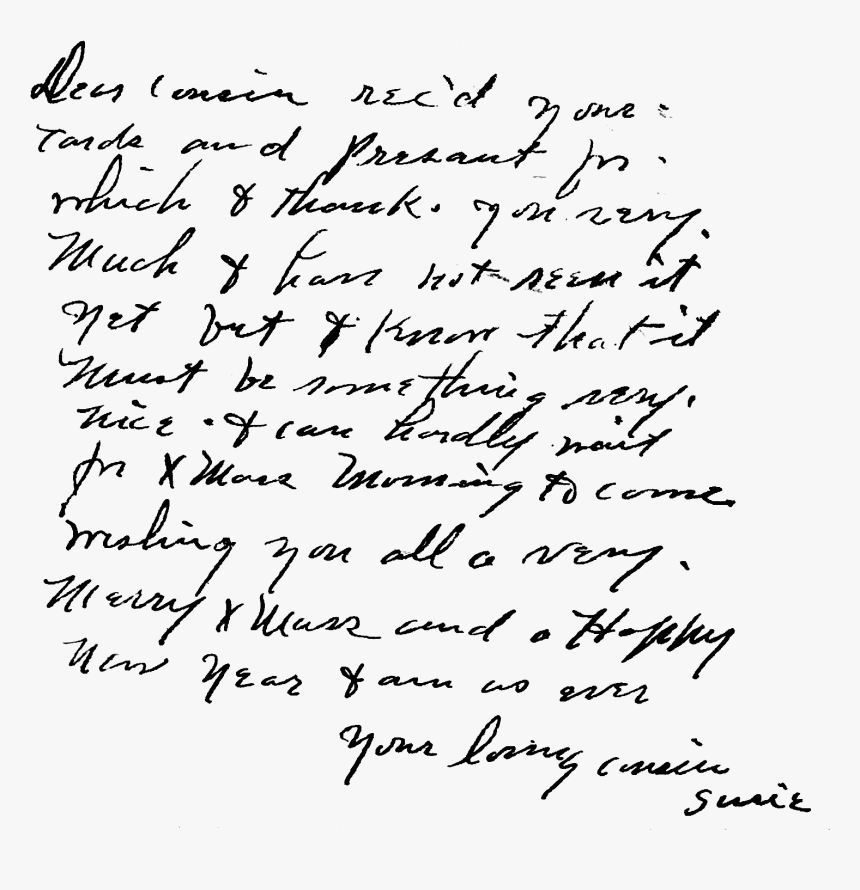 Dear Cousin rec'd your
Cards and Presant for
which I thank. you very.
Much I have not seen it
yet but I Know that it
Must be something very.
nice. I can hardly wait
for X Mass Morning to come.
wishing you all a very.
Merry X Mass and a Happy
New Year I am as ever
your loving cousin
Susie